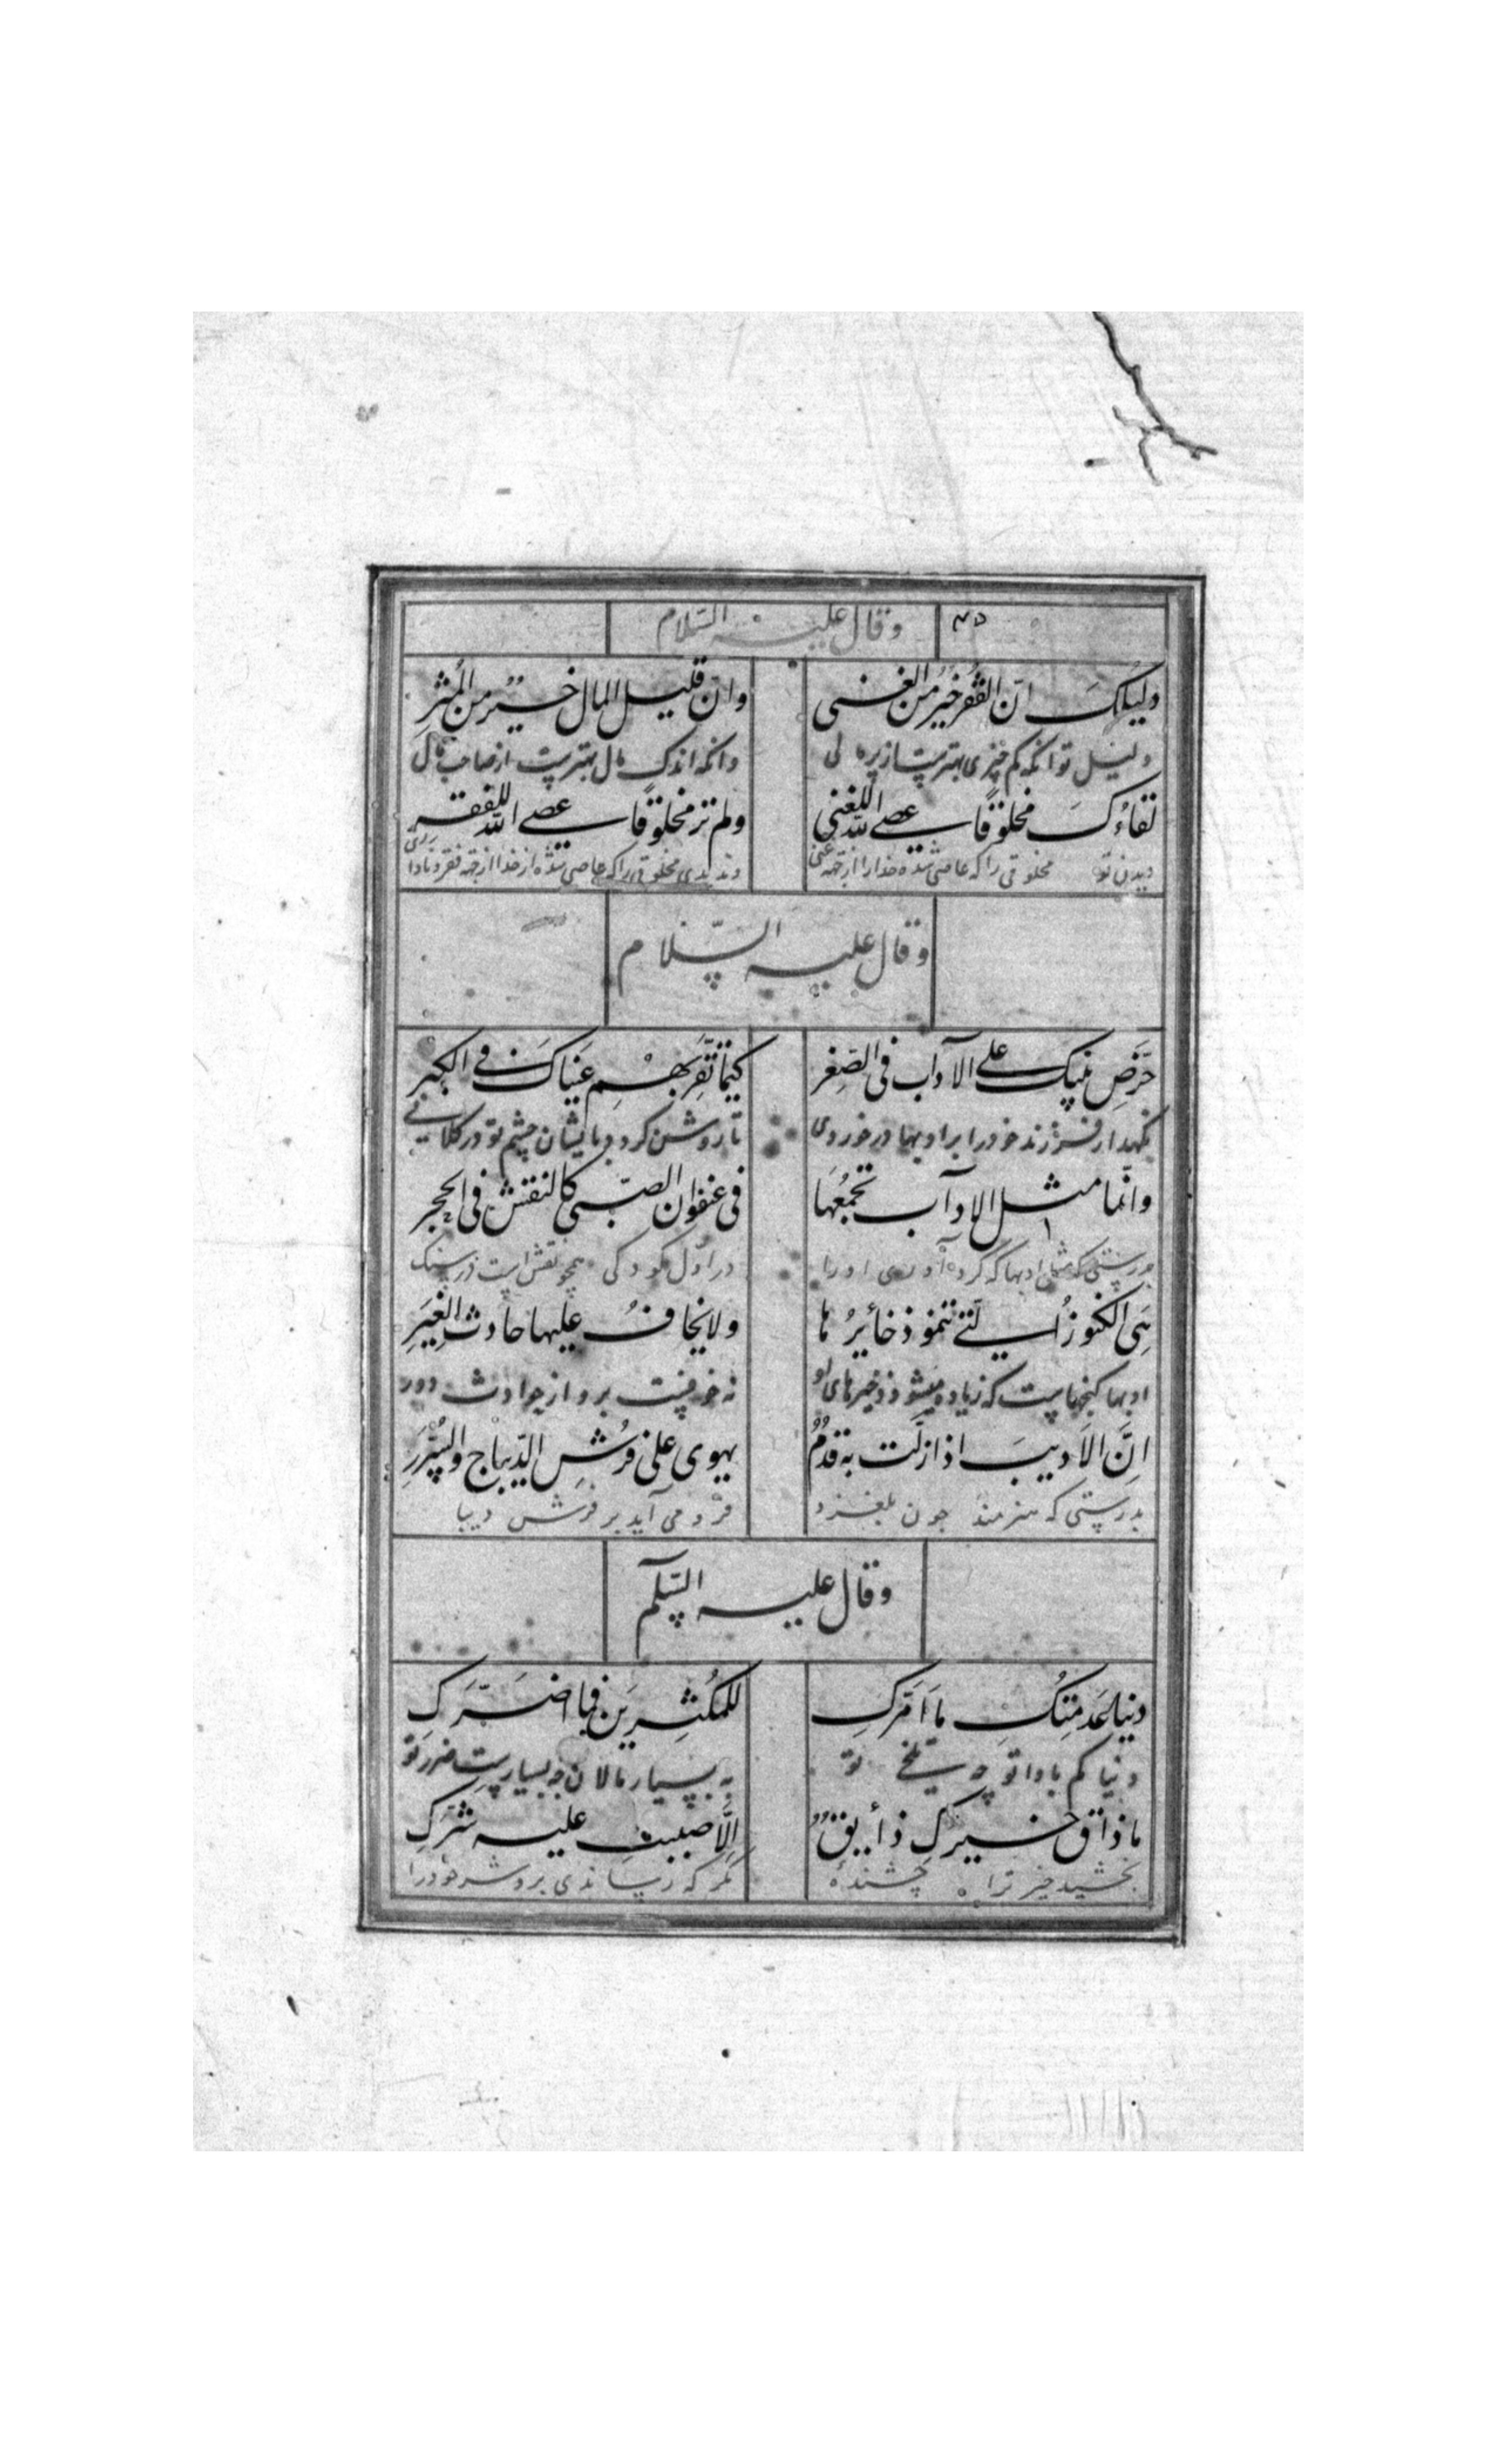 وقال علیه السلام
دلیلک ان الفقر خیر من الغنی
وان قلیل المال خیر من المثر
دلیل تو انکه کم چیزی بهترست از
وانکه اندک مال بهترست از صاحب مال
لقاءک مخلوقا عصی الله للغنی
ولم تر مخلوقا عصی الله للفقر
دیدن تو مخلوقی را که عاصی شده خدا را ازجهه غنی
وندیدی مخلوقی را که عاصی شده از خدا ازجهه فقر و
وقال علیه السلام
حرض بنیک علی الاداب فی الصغر
کیما تقر بهم عیناک فی الکبر
نکهدار فرزند خود را بر ادبها در خوردی
تا روشن کردد بایشان چشم تو در کلانی
وانما مثل الاداب تجمعها
فی عنفوان الصبی کالنقش فی الحجر
که مثل ادبها که کرد آوری او را
در اول کودکی همچو نقش است در سنک
هی الکنوز التی تنمو ذخائرها
ولا یخاف علیها حادث الغیر
ادبها کنجهاست که زیاده میشود ذخیرهای او
نه خوفست برو از حوادث دور
ان الادیب اذا زلت به قدم
یهوی علی فرش الدیباج والسرر
بدرستی که هنرمند چون بلغزد
فرو می آید بر فرش دیبا
وقال علیه السلم
دنیا عدمتک ما امرک
للمکثرین فما اضرک
دنیا کم بادا تو چه تلخی تو
به بسیار مالان چه بسیارست ضرر تو
ما ذاق خیرک ذائق
الا صببت علیه شرک
خیر ترا چشنده
مکر که رساندی برو شر خود را